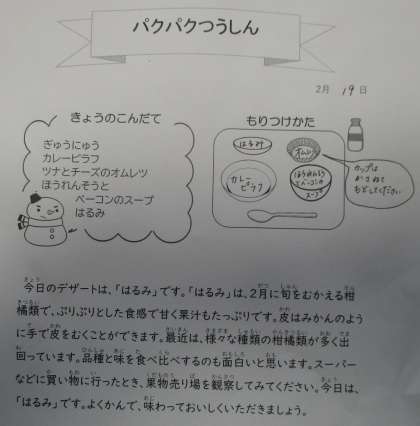 パクパクつうしん
2月 19日
きょうのこんだて
ぎゅうにゅう
カレーピラフ
ツナとチーズのオムレツ
ほうれんそうと
ベーコンのスープ
はるみ
もりつけかた
はるみ
オムレツ
カレー
ピラフ
ほうれんそう
とベーコンの
スープ
カップは
かさねて
もどしてください
今日のデザートは、「はるみ」です。「はるみ」は、2月に旬をむかえる柑
橘類で、ぷりぷりとした食感で甘く果汁もたっぷりです。皮はみかんのよう
に手で皮をむくことができます。最近は、様々な種類の柑橘類が多く出
回っています。品種と味を食べ比べするのも面白いと思います。スーパー
などに買い物に行ったとき、果物売り場を観察してみてください。今日は、
「はるみ」です。よくかんで、味わっておいしくいただきましょう。